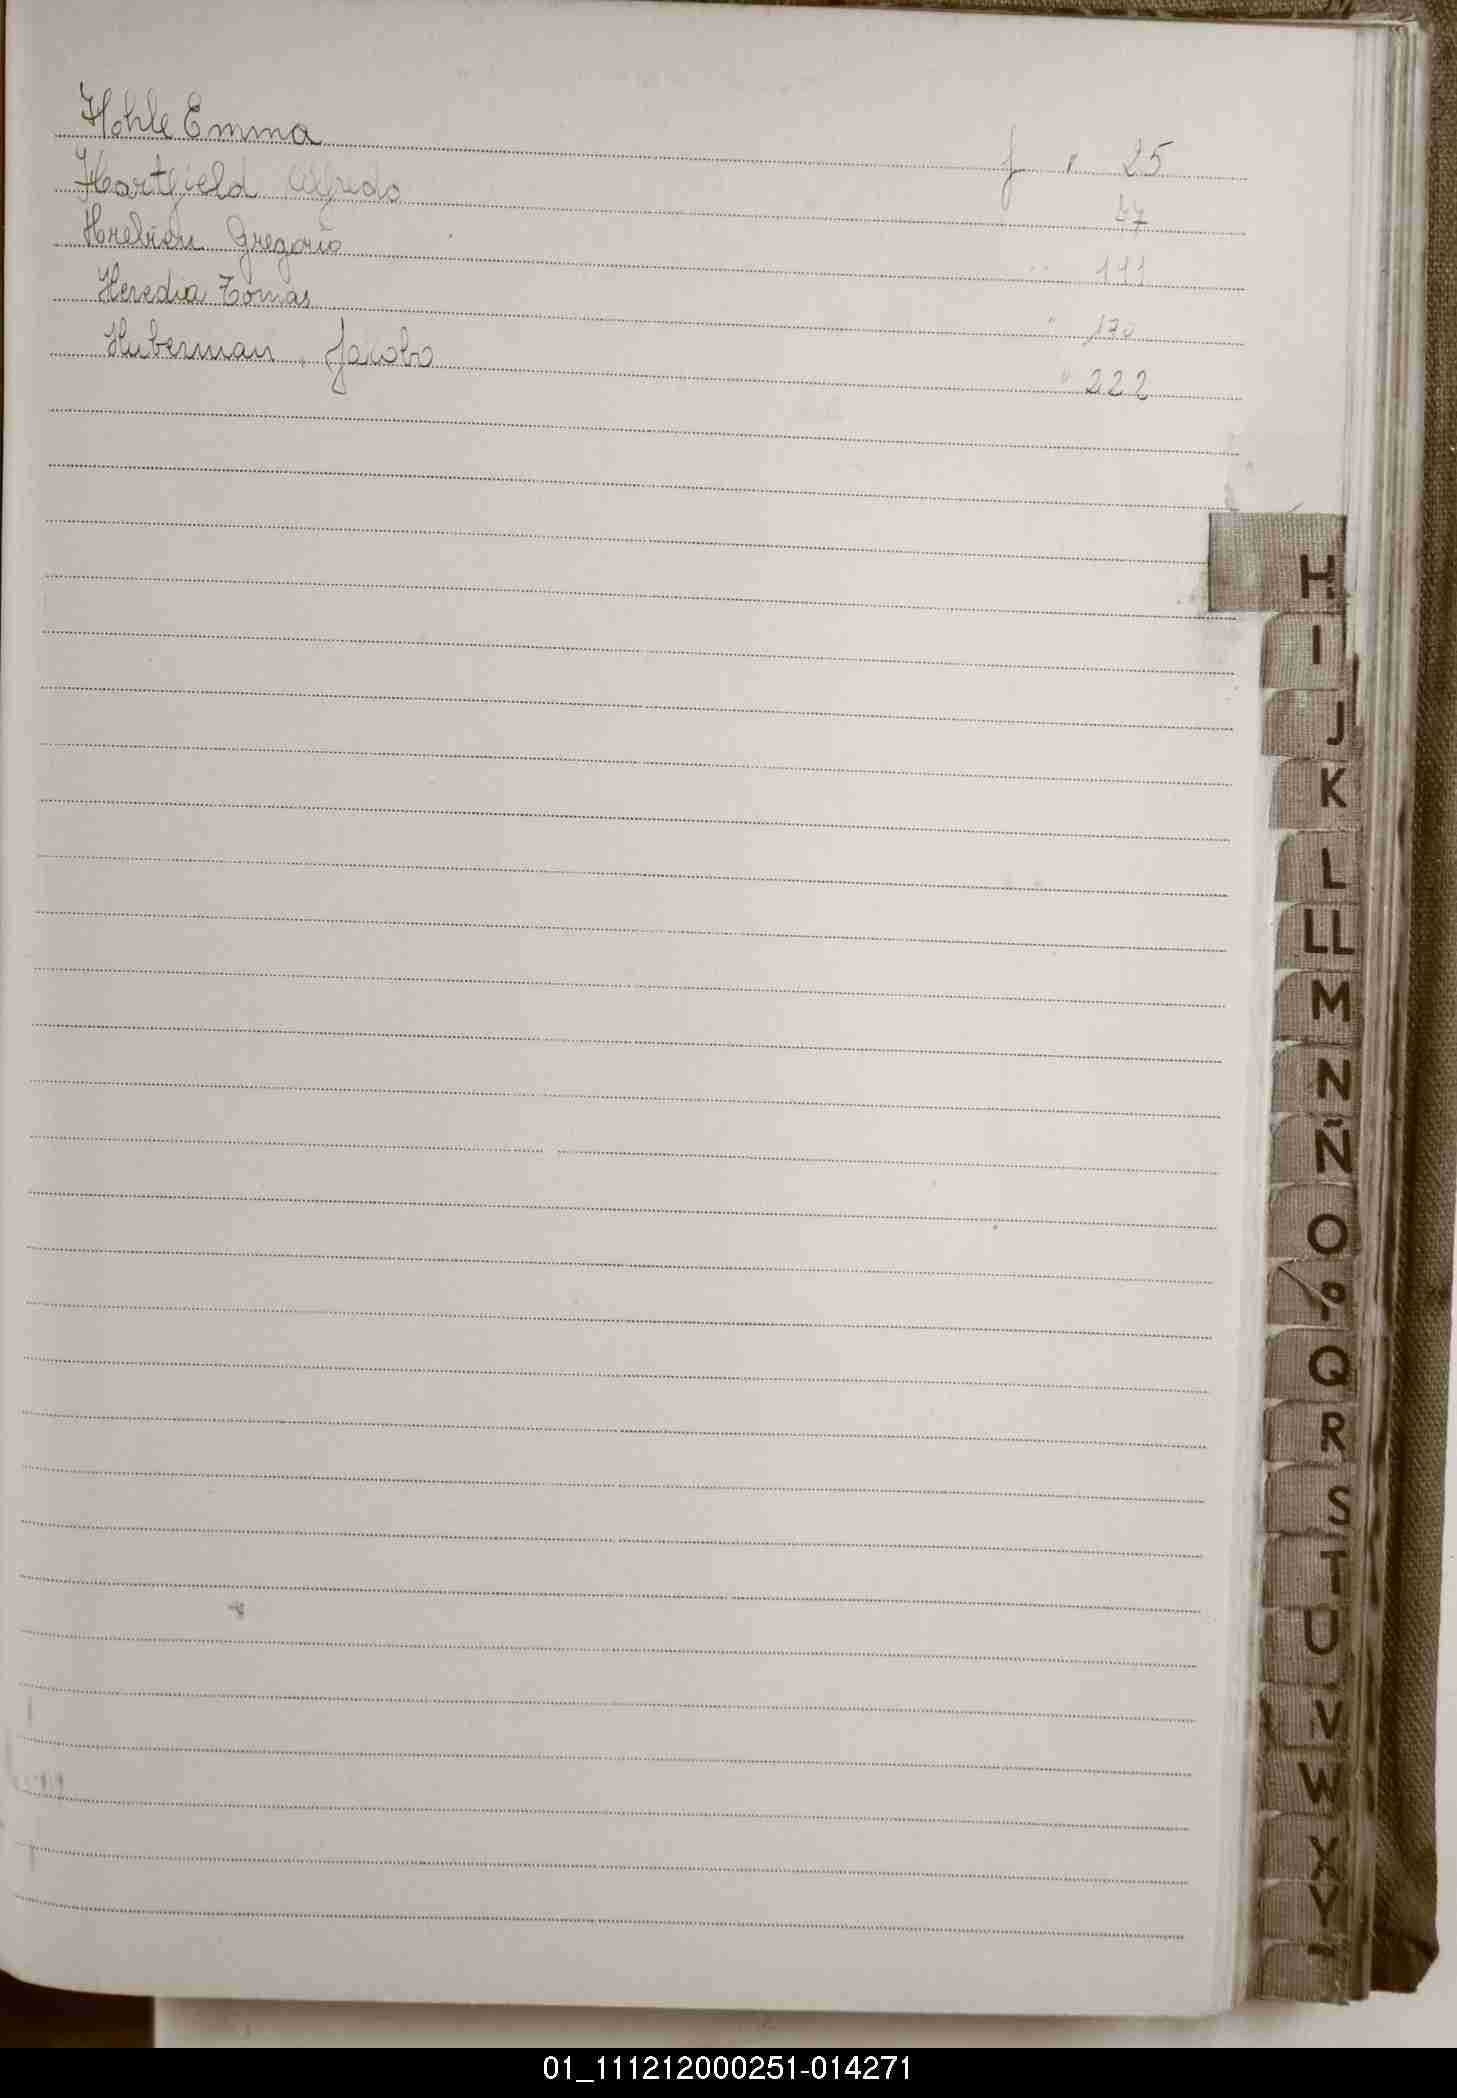 Hohle Emma f " 25
Hartfield Alfredo 47
Hrebien Gregorio 111
Heredia Tomas " 170
Huberman, Jacobo " 222
H
I
J
K
L
LL
M
N
Ñ
O
P
Q
R
S
T
U
V
W
X
Y
01_111212000251-014271